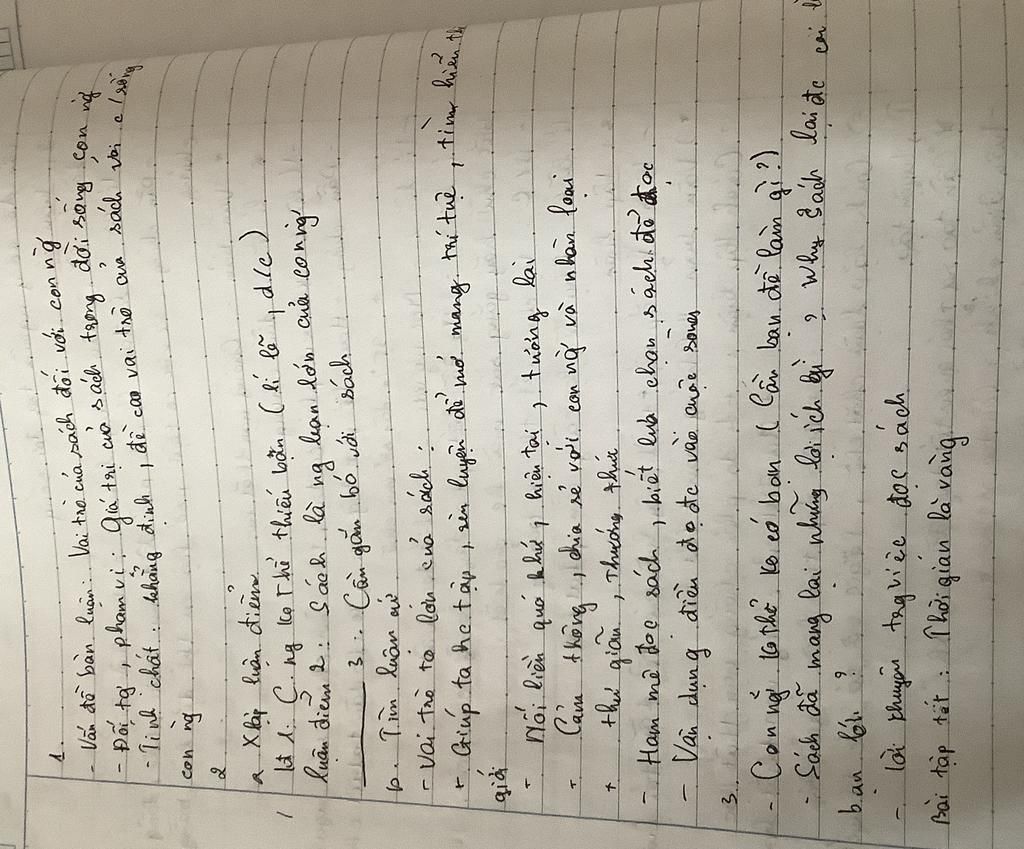 1.
- Vấn đề bàn luận: Vai trò của sách đối với con ng
- Đối tg, phạm vi: Giá trị của sách trong đời sống con ng
- Tính chất: khẳng định, đề cao vai trò của sách với c/sống
con ng
2
a Xlập luận điểm
Lđ 1: C.ng ko thể thiếu bạn (lí lẽ, d/c)
luận điểm 2: Sách là ng bạn lớn của con ng
3: Cần gắn bó với sách
b. Tìm luận cứ
- Vai trò to lớn của sách:
+ Giúp ta học tập, rèn luyện để mở mang trí tuệ, tìm hiểu th
giới
- Nối liền quá khứ, hiện tại, tương lai
+ Cảm thông, chia sẻ với con ng và nhân loại
+ thư giãn, thưởng thức
- Ham mê đọc sách, biết lựa chọn sách để đọc
- Vận dụng điều đọ đc vào cuộc sống
3.
- Con ng ko thể ko có bạn (Cần bạn để làm gì?)
- Sách đã mang lại những lợi ích gì, why sách lại đc coi l
bạn lớn?
- lời khuyên trg việc đọc sách
Bài tập tết: Thời gian là vàng